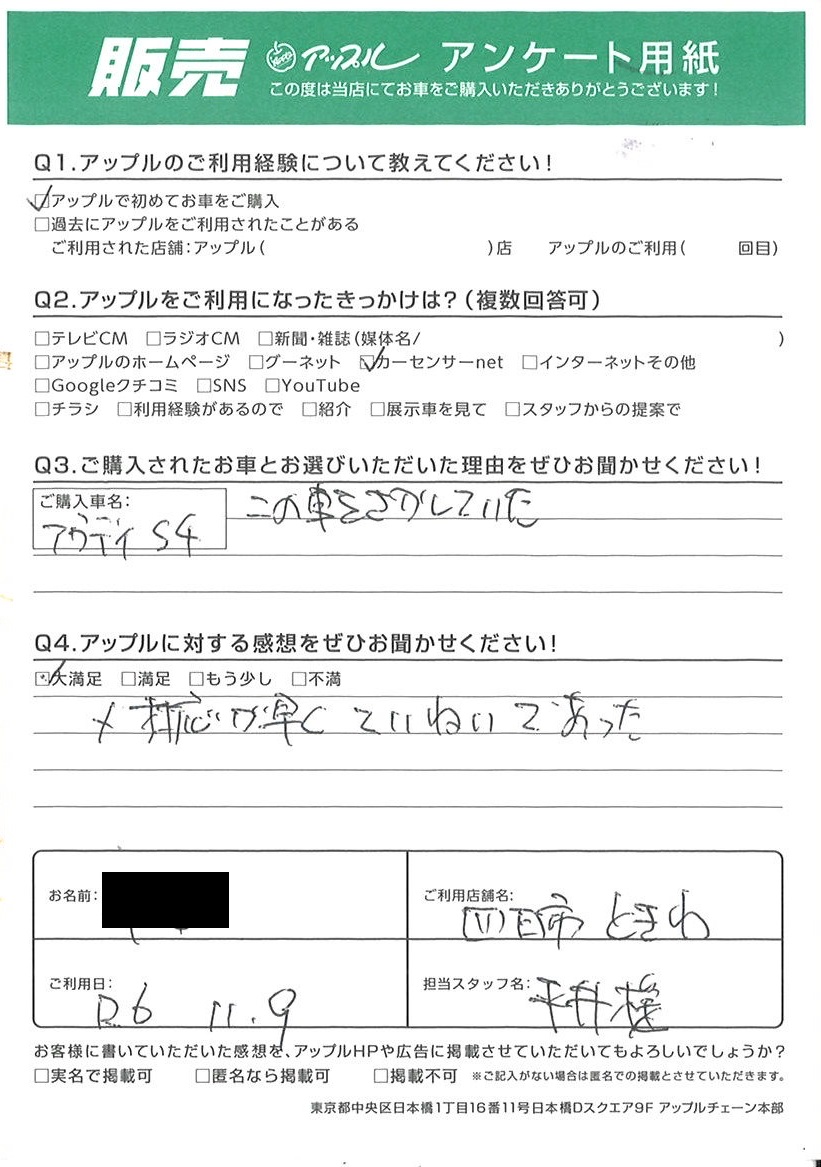 販売 アップル アンケート用紙
この度は当店にてお車をご購入いただきありがとうございます!
Q1.アップルのご利用経験について教えてください!
☑アップルで初めてお車をご購入
□過去にアップルをご利用されたことがある
ご利用された店舗:アップル( )店 アップルのご利用( 回目)
Q2.アップルをご利用になったきっかけは?(複数回答可)
□テレビCM □ラジオCM □新聞・雑誌(媒体名/ )
□アップルのホームページ □グーネット ☑カーセンサーnet □インターネットその他
□Googleクチコミ □SNS □YouTube
□チラシ □利用経験があるので □紹介 □展示車を見て □スタッフからの提案で
Q3.ご購入されたお車とお選びいただいた理由をぜひお聞かせください!
ご購入車名:
アウディ S4
この車をさがしていた
Q4.アップルに対する感想をぜひお聞かせください!
☑大満足 □満足 □もう少し □不満
対応が早くていねいであった
お名前:
ご利用店舗名:
四日市 ときわ
ご利用日:
R6 11.9
担当スタッフ名:
平井様
お客様に書いていただいた感想を、アップルHPや広告に掲載させていただいてもよろしいでしょうか?
□実名で掲載可 □匿名なら掲載可 □掲載不可 ※ご記入がない場合は匿名での掲載とさせていただきます。
東京都中央区日本橋1丁目16番11号日本橋Dスクエア9F アップルチェーン本部